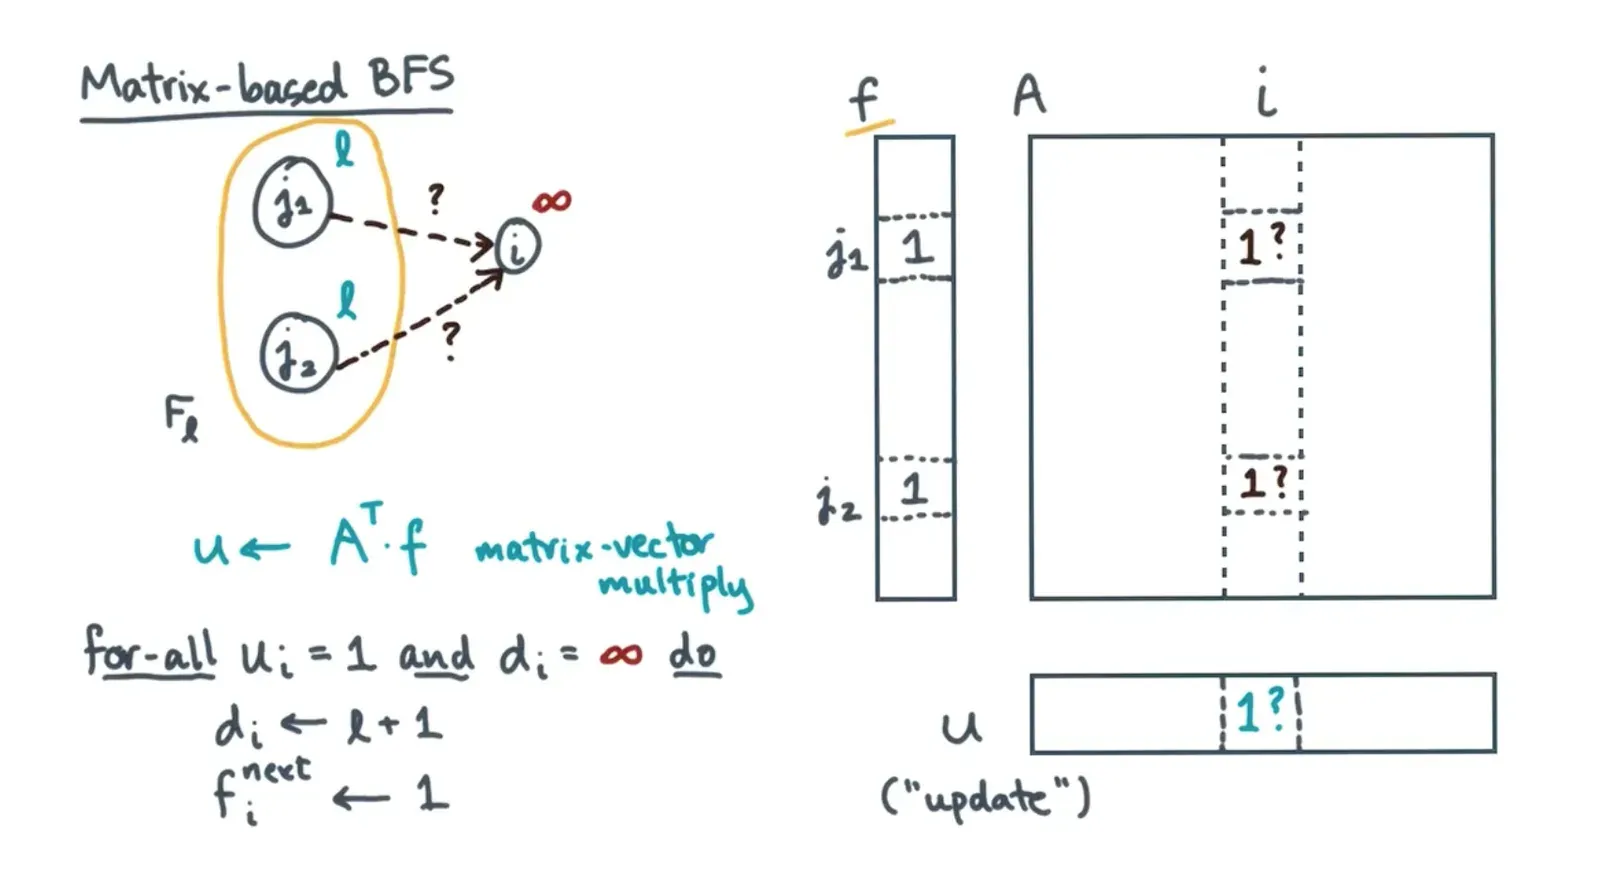 Matrix-based BFS
l
j1
?
∞
i
l
j2
?
Fl
u ← Aᵀ · f matrix-vector
multiply
for-all ui = 1 and di = ∞ do
di ← l + 1
fi^next ← 1
f
A
i
j1
1
1?
j2
1
1?
u
1?
("update")